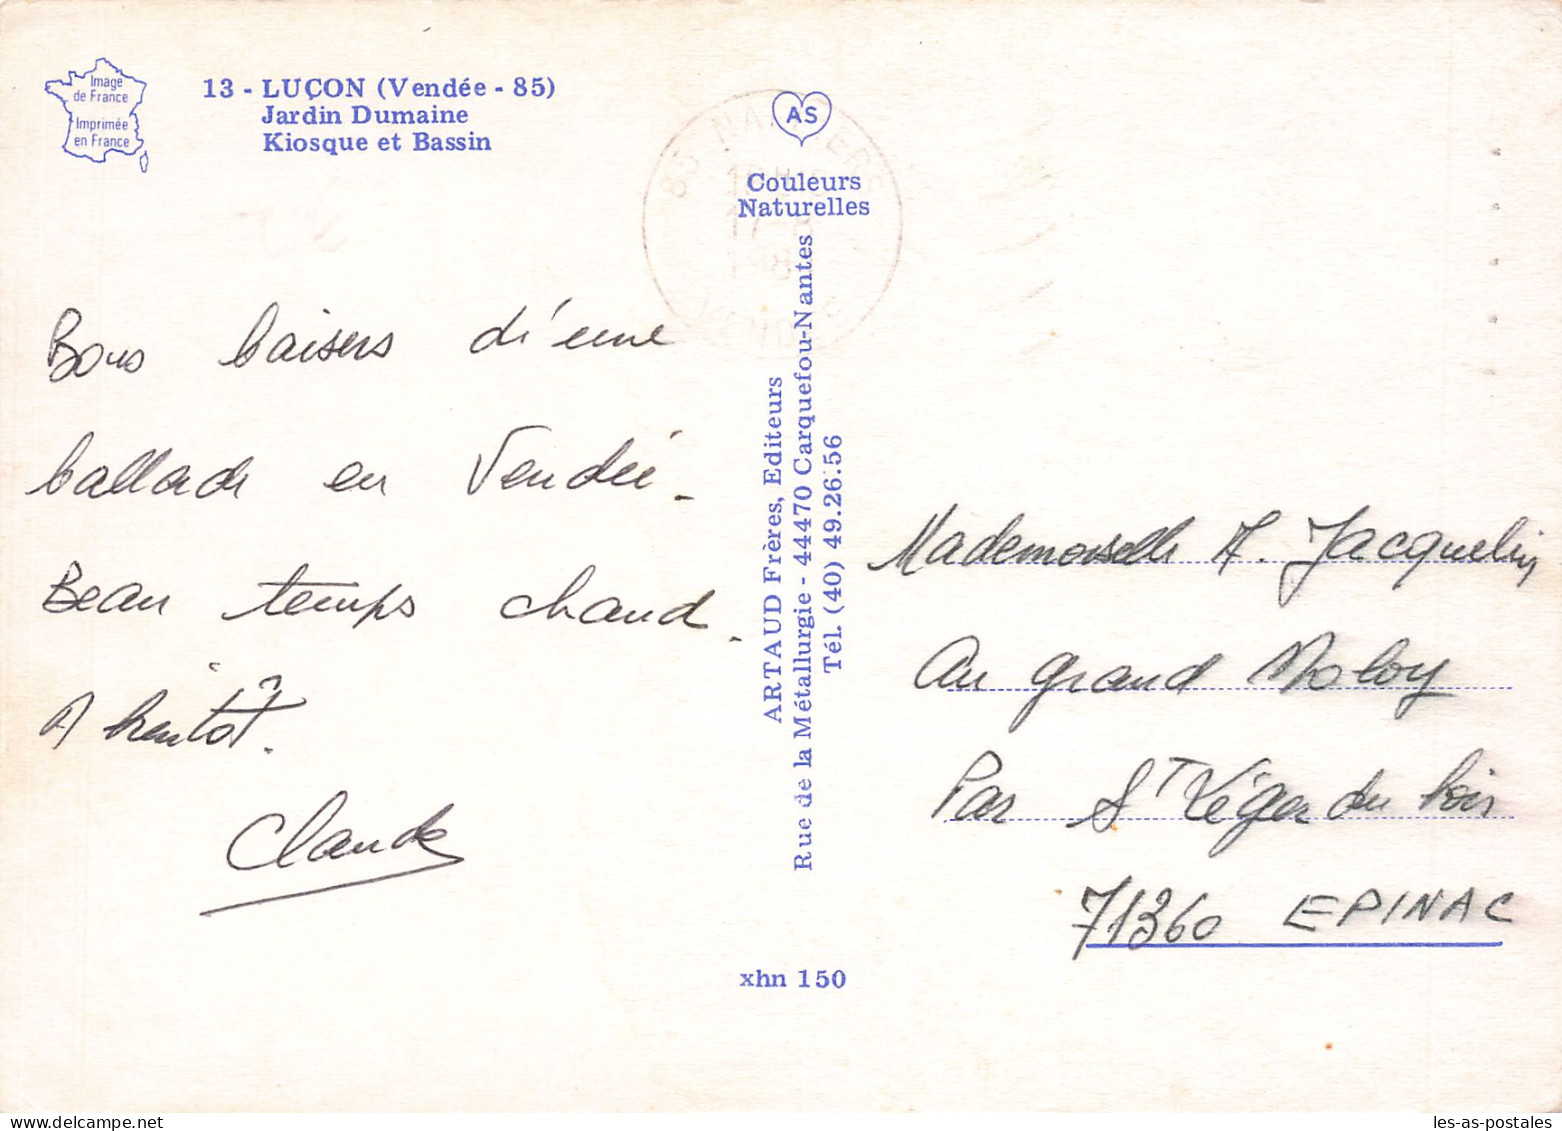 Image
de France
Imprimée
en France
13 - LUÇON (Vendée - 85)
Jardin Dumaine
Kiosque et Bassin
AS
Couleurs
Naturelles
ARTAUD Frères, Editeurs
Rue de la Métallurgie - 44470 Carquefou-Nantes
Tél. (40) 49.26.56
xhn 150
Bons baisers d'une
ballade en Vendée -
Beau temps chaud.
A bientôt.
Claude
Mademoiselle A. Jacquelin
Au grand Moloy
Par St Léger du bois
71360 EPINAC
les-as-postales